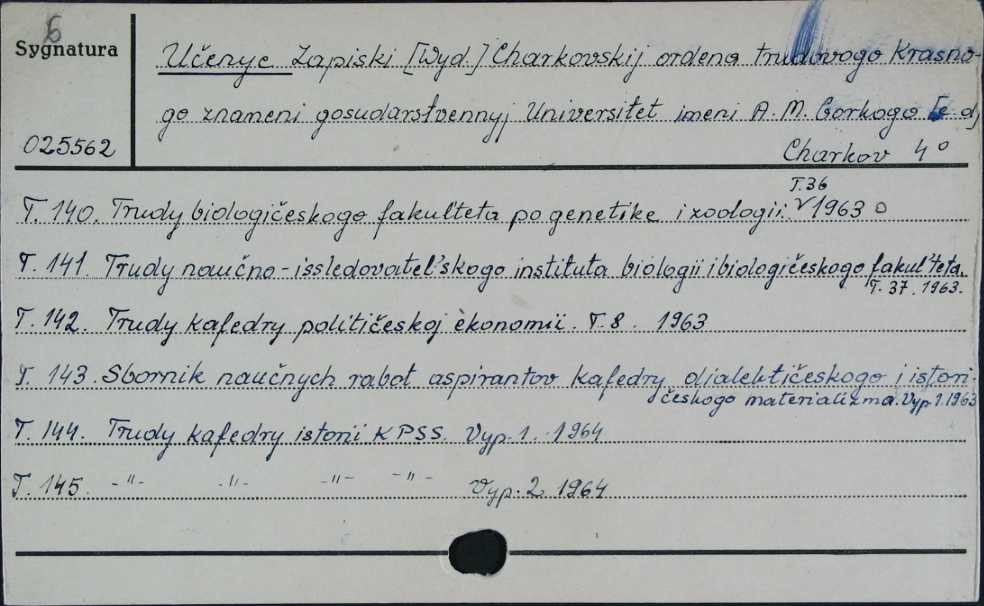 6
Sygnatura
Učenye Zapiski [Wyd.] Charkovskij ordena trudovogo Krasno-
go znameni gosudarstvennyj Universitet imeni A. M. Gorkogo
025562
Charkov 4°
T. 36
T. 140. Trudy biologičeskogo fakul'teta po genetike i zoologii. 1963
T. 141. Trudy naučno-issledovatel'skogo instituta biologii i biologičeskogo fakul'teta.
T. 37. 1963.
T. 142. Trudy kafedry političeskoj èkonomii. T. 8. 1963
T. 143. Sbornik naučnych rabot aspirantov kafedry dialektičeskogo i istori-
českogo materializma. Vyp. 1. 1963
T. 144. Trudy kafedry istorii KPSS. Vyp. 1. 1964
T. 145. -"- -"- -"- -"- Vyp. 2 1964